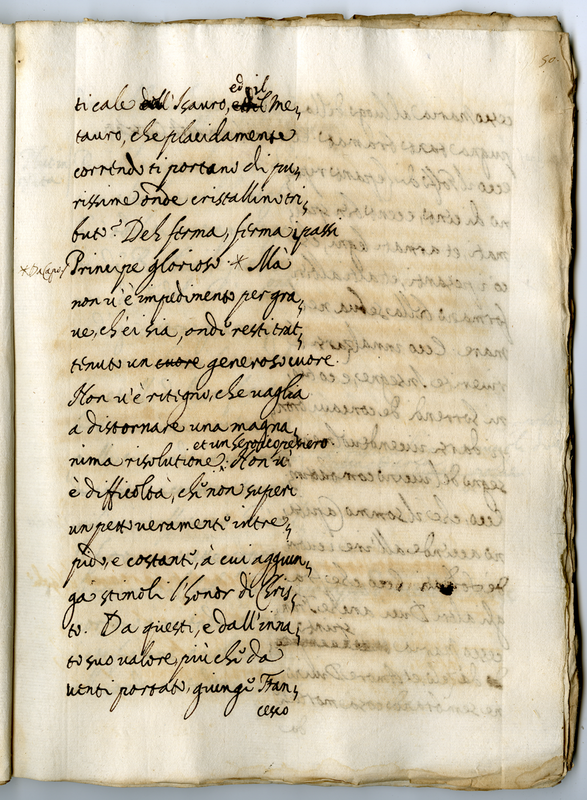 50.
ed il
ticale dall'Isauro, ed il Me,
tauro, che placidamente
correndo ti portano di pu,
rissime onde cristallino tri,
buto? Deh ferma, ferma i passi
*Da Capo/ Principe glorioso * Mà
non v'è impedimento per gra,
ve, ch'ei sia, ond'resti trat,
tenuto un cuore generoso cuore
Non v'è ritegno, che vaglia
a distornare una magna,
et un sero pensiero
nima risolutione: Non v'
è difficoltà, ch' non superi
un petto veramente intre,
pido, e costante, à cui aggiun,
ga stimoli l'honor di Chris,
to. Da questi, e dall'inna,
to suo valore più ch' da
venti portato, giunge Fran,
cesco